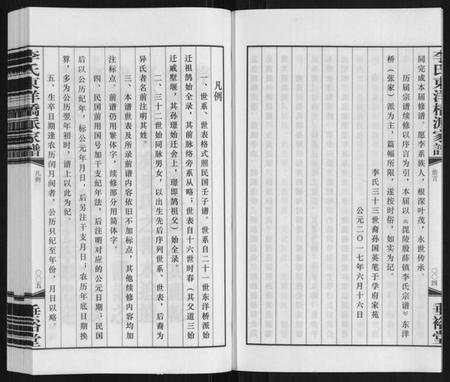 李氏東洋橋派家譜
前言
〇〇四
垂裕堂
同完成本届修谱，愿李系族人，根深叶茂，永世传承。
历届宗谱续修以序言为引，本届以《毘陵殷薛镇李氏宗谱》东洋
桥（张家）一派为主，篇幅所限，遂按时俗，如实为记。
李氏三十三世裔孙国英笔于学府家苑
公元二〇一七年六月十六日
李氏東洋橋派家譜
凡例
〇〇五
垂裕堂
凡例
一、世系、世表格式照民国壬子谱。世系自二十一世东洋桥派始
迁祖鹄始全录，其前脉络旁系从略；世表自十六世时春（其父道三始
迁戚墅堰，其孙璟始迁舍上，璟即鹄祖父）始全录。
二、三十二世始同脉男女，以出生先后序列世系、世表，后裔为
异氏者名前注明其姓。
三、本谱世表及所录前谱内容依旧不加标点，其他续修内容均加
注标点。前谱仍用繁体字，续修部分用简体字。
四、民国前用国号加干支纪年法，后注明对应的公元日期；民国
后以公历纪年，标公元年月日，后另注干支月日；农历年底日期换
算，多为公历翌年初时，谱上以此为纪。
五、生卒日期逢农历闰月间者，公历只纪至年份，月日以略。